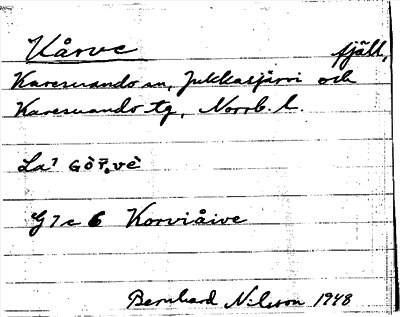 Kårve fjäll,
Karesuando sn, Jukkasjärvi och
Karesuando tg, Norrb. l.
La¹
G 7 c 6 Korviåive
Bernhard Nilsson 1948